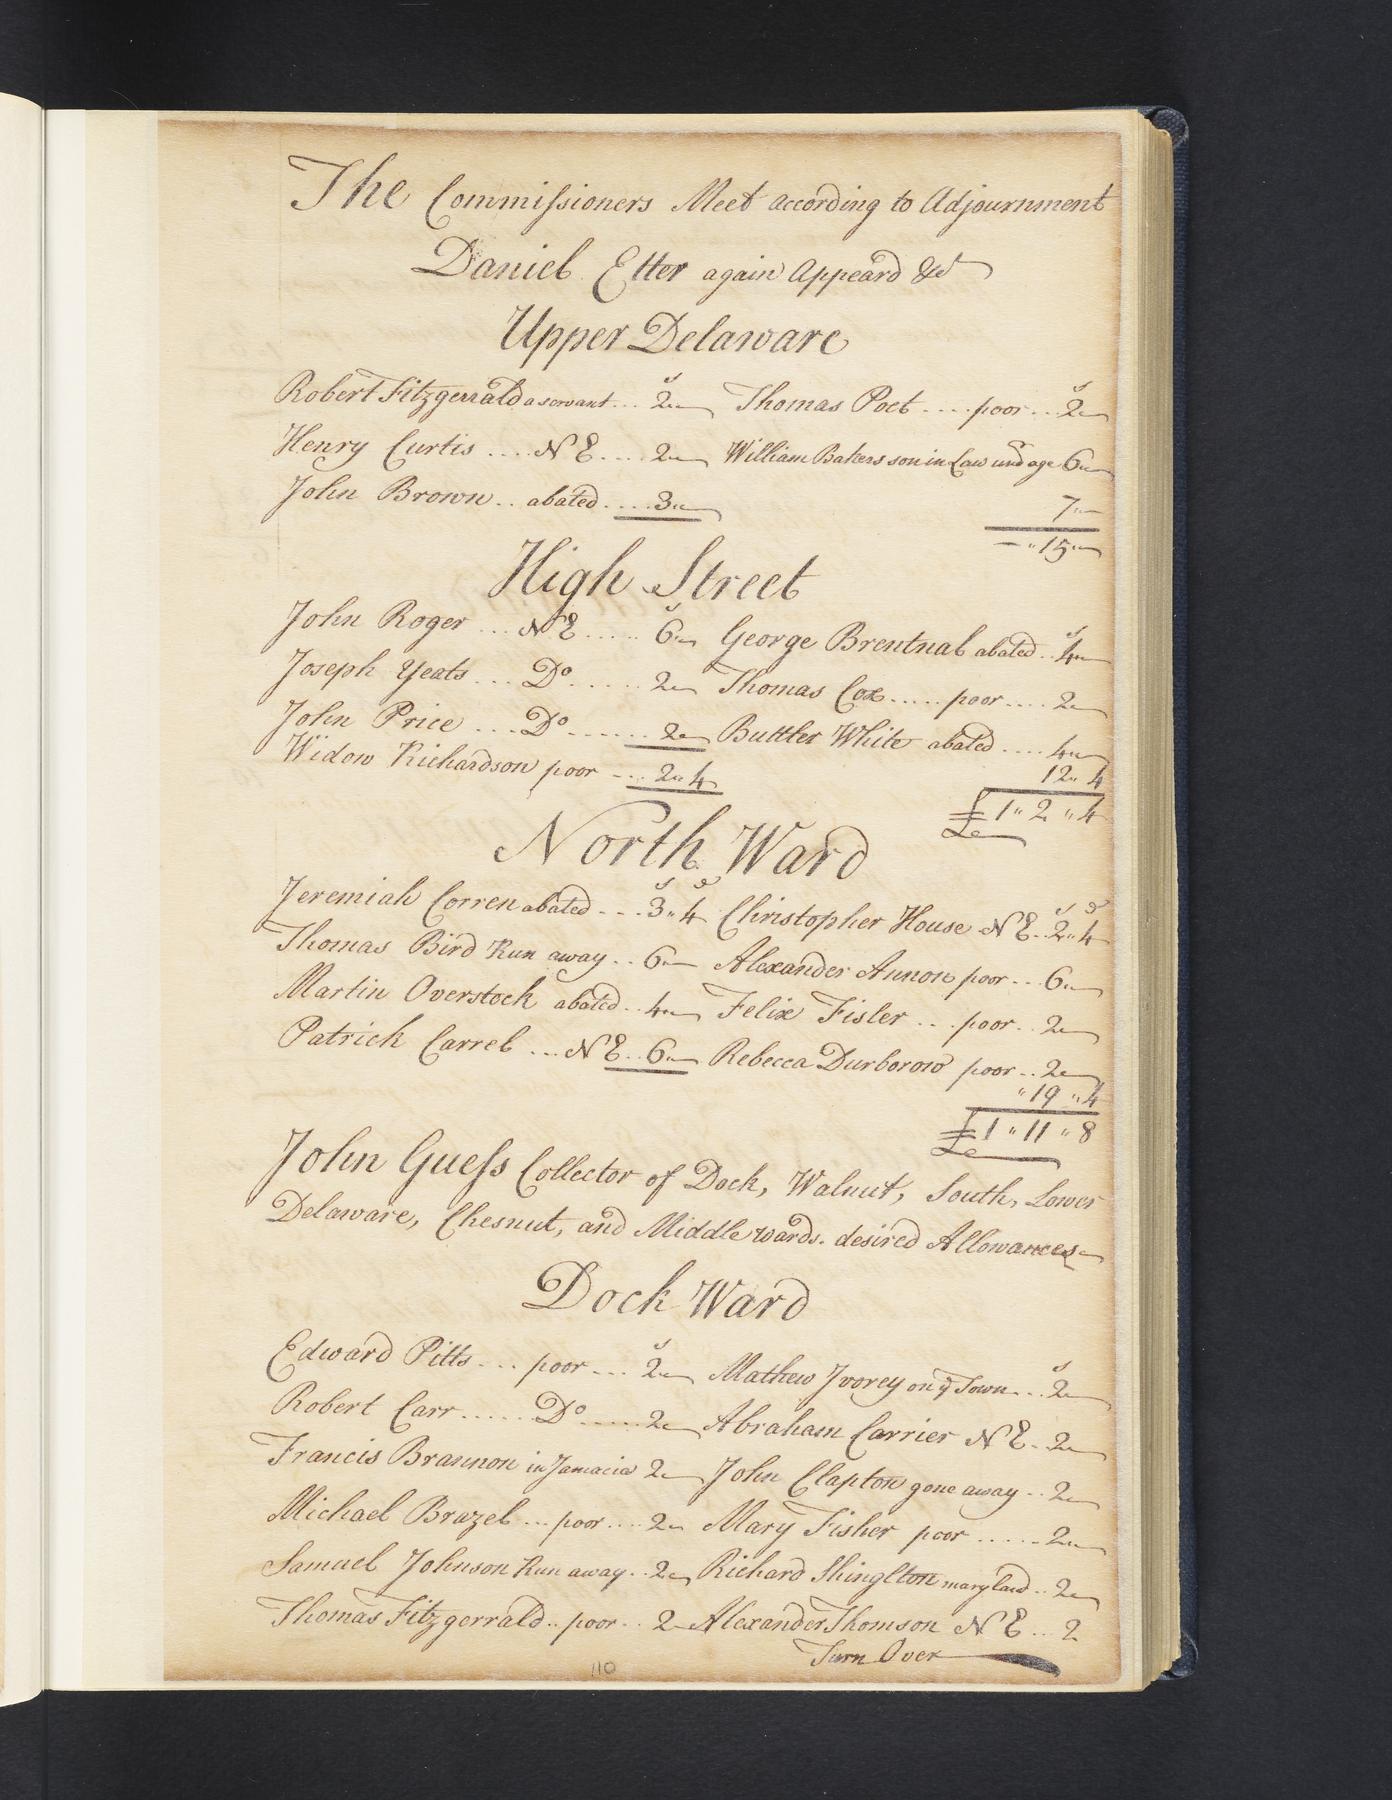 The Commissioners Meet according to Adjournment
Daniel Etter again Appeard &c
Upper Delaware
Robert Fitzgerrald a servant ... 2 s Thomas Poet .... poor ... 2 s
Henry Curtis .... N E .... 2 William Bakers son in Law undr age 6
John Brown .. abated .... 3 7
" 15 "
High Street
John Roger ... N E ..... 6 s George Brentnal abated .. 4 s
Joseph Yeats ... Do ...... 2 Thomas Cox ..... poor .... 2
John Price ... Do ...... 2 Buttler White abated .... 4
Widow Richardson poor - ... 2 " 4 12 " 4
£ 1 " 2 " 4
North Ward
Jeremiah Corren abated - - - 3 s " 4 d Christopher House N E .. 2 s " 4 d
Thomas Bird Run away .. 6 Alexander Annon poor ... 6
Martin Overstock abated .. 4 Felix Fisler ... poor .. 2
Patrick Carrel ... N E .. 6 Rebecca Durborow poor .. 2
" 19 " 4
£ 1 " 11 " 8
John Guess Collector of Dock, Walnut, South, Lower
Delaware, Chesnut, and Middle wards. desired Allowances
Dock Ward
Edward Pitts ... poor ... 2 s Mathew Ivorey on ye Town ... 2 s
Robert Carr ..... Do ..... 2 Abraham Carrier N E - 2
Francis Brannon in Jamacia 2 John Clapton gone away .. 2
Michael Brazel ... poor .... 2 Mary Fisher poor ..... 2
Samuel Johnson Run away .. 2 Richard Shinglton maryland .. 2
Thomas Fitzgerrald .. poor .. 2 Alexander Thomson N E ... 2
Turn Over
110